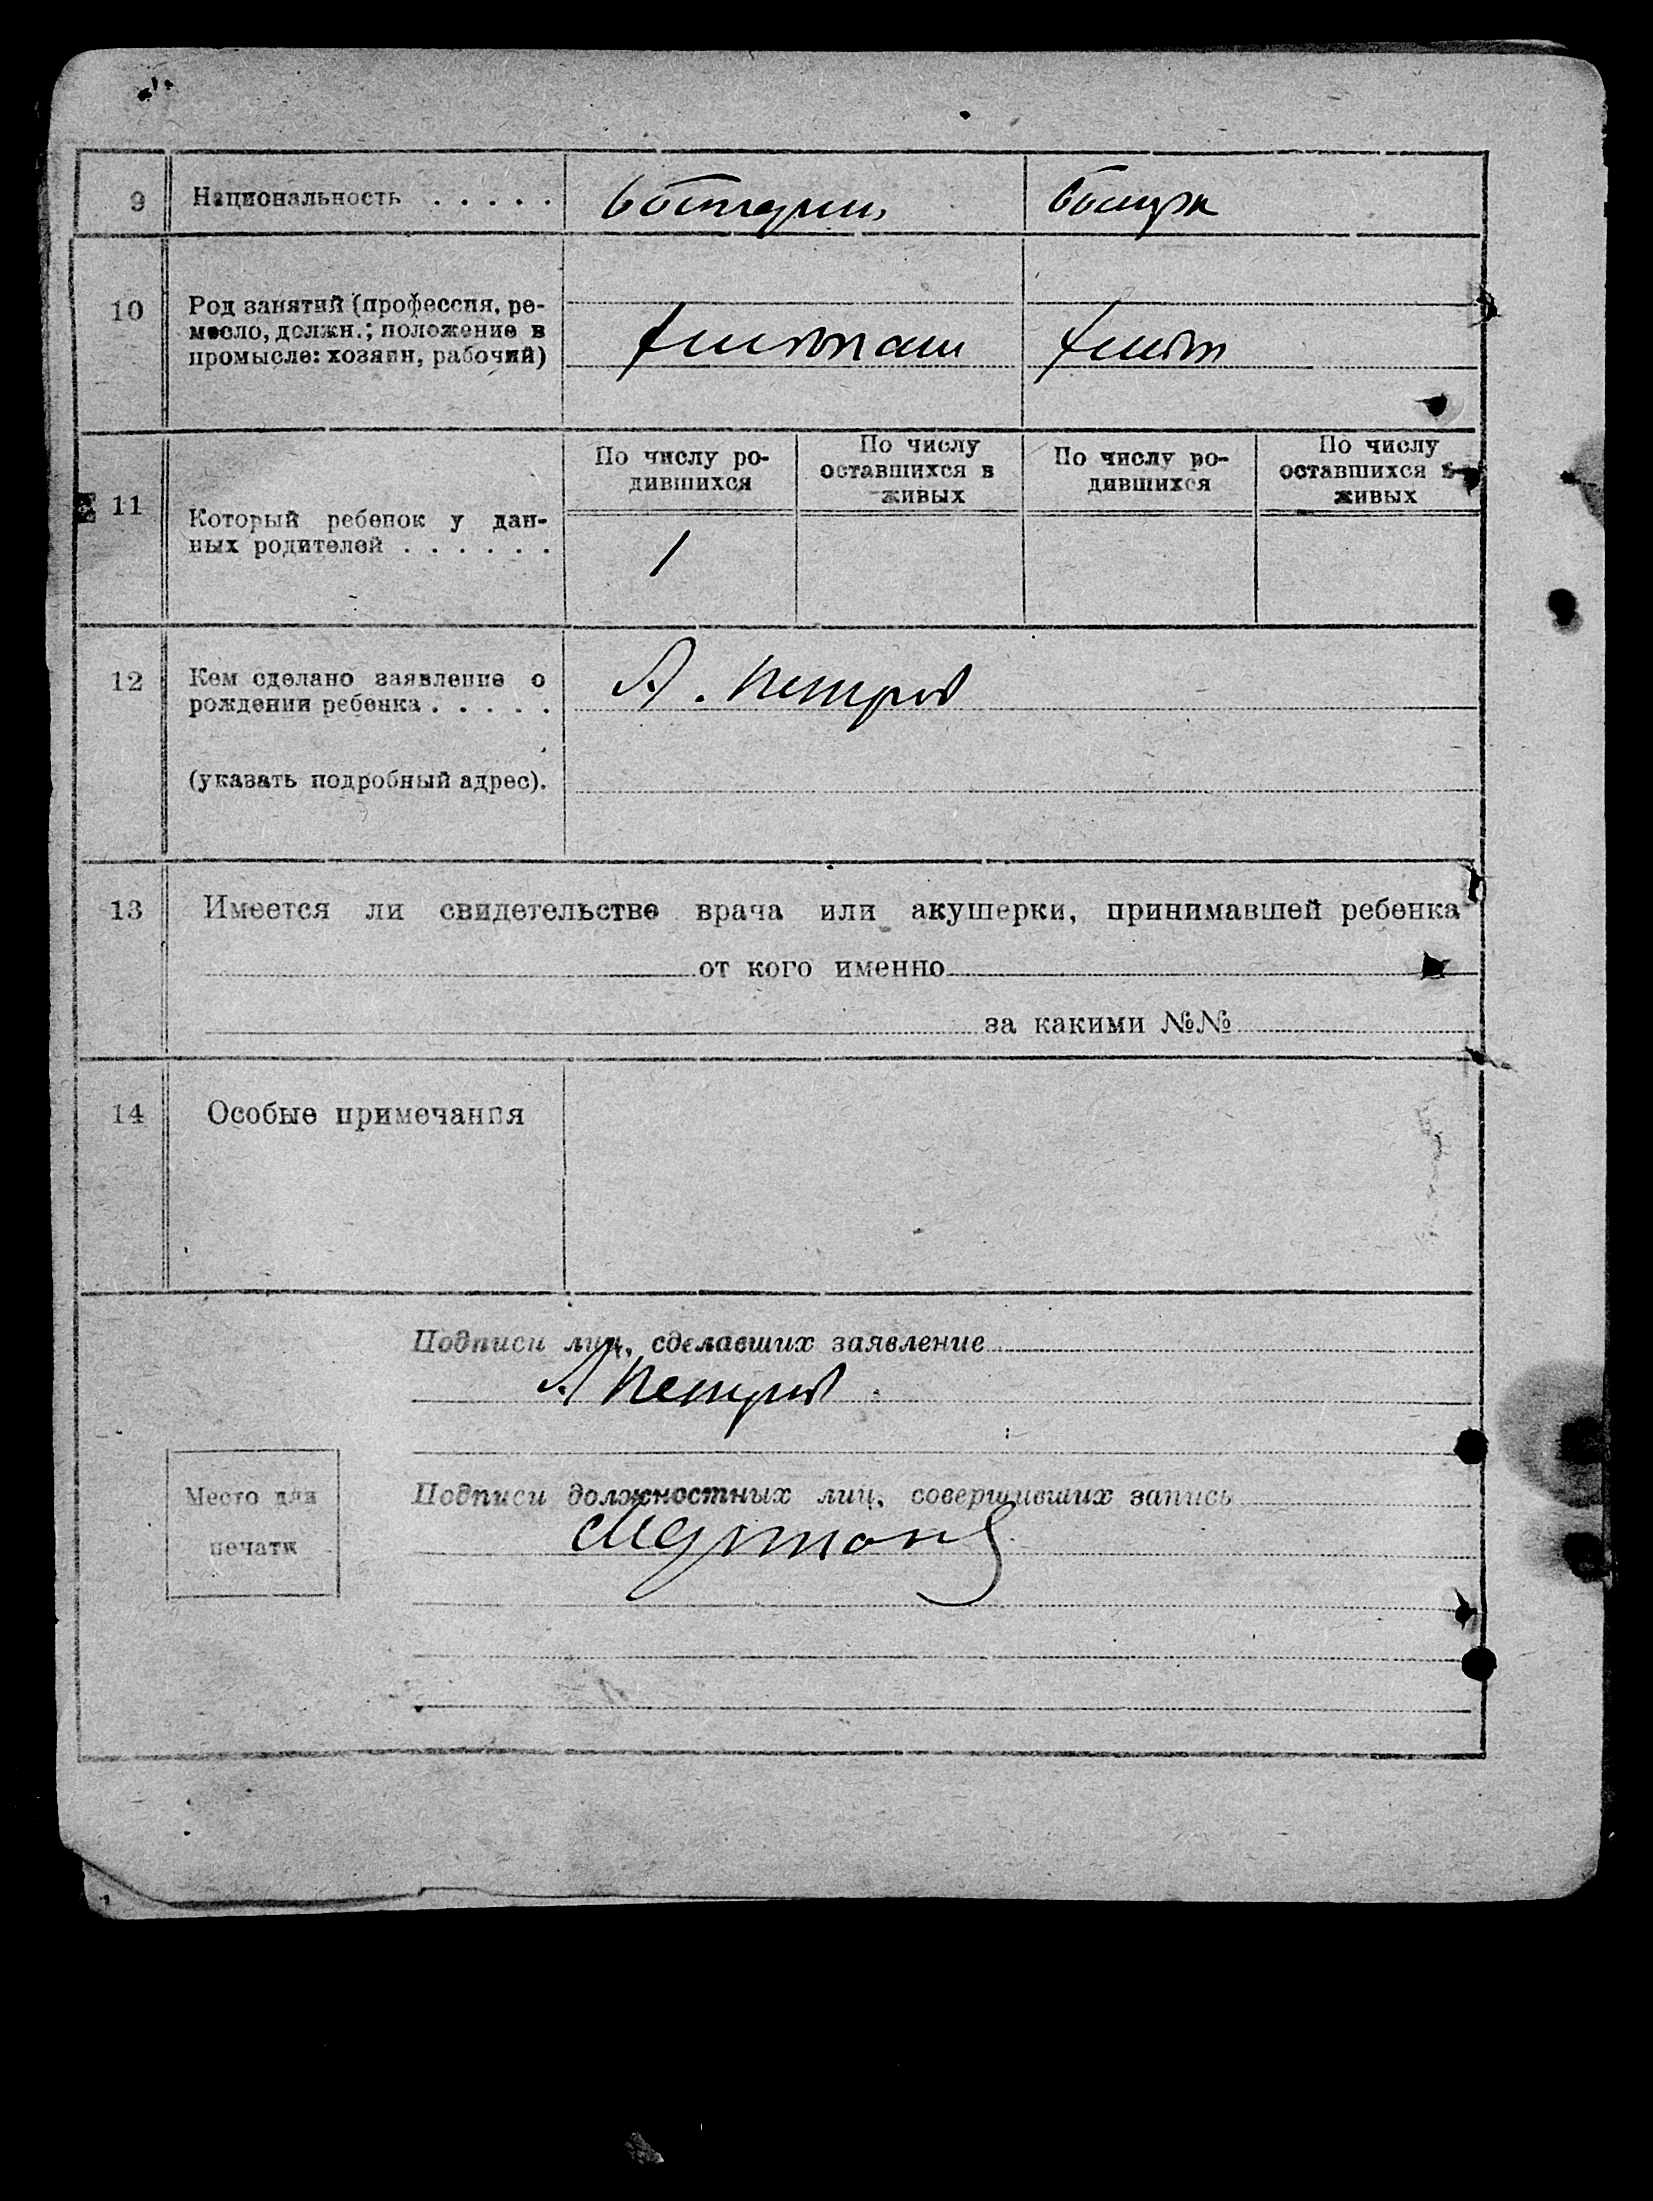 9 Национальность . . . . .
10 Род занятий (профессия, ре-
месло, должн.; положение в
промысле: хозяин, рабочий)
По числу ро-
дившихся
По числу
оставшихся в
живых
По числу ро-
дившихся
По числу
оставшихся в
живых
11 Который ребенок у дан-
ных родителей . . . . . .
1
12 Кем сделано заявление о
рождении ребенка . . . . .
А. Петров
(указать подробный адрес).
13 Имеется ли свидетельство врача или акушерки, принимавшей ребенка
от кого именно
за какими №№
14 Особые примечания
Подписи лиц, сделавших заявление
А Петров
Место для
печати
Подписи должностных лиц, совершивших запись